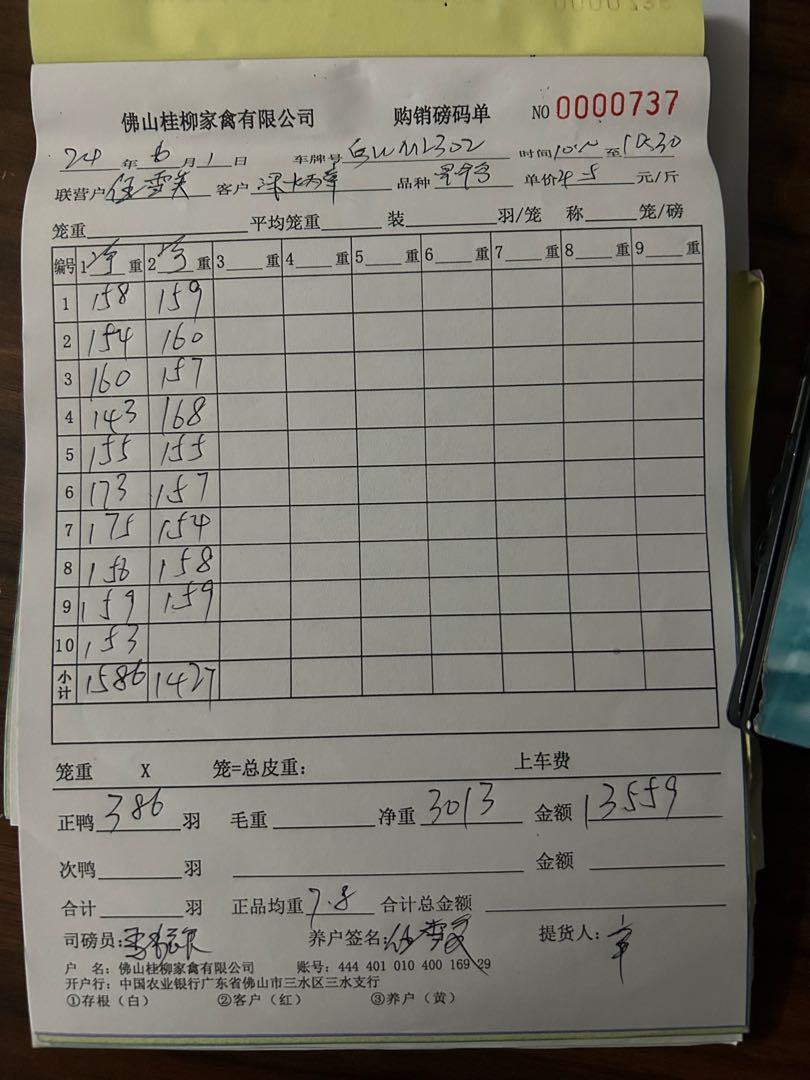 佛山桂柳家禽有限公司 购销磅码单 NO 0000737
24年6月1日 车牌号 时间 至10:30
联营户任雪美 客户 品种 单价4.5元/斤
笼重 平均笼重 装 羽/笼 称 笼/磅
编号 1净重 2净重 3重 4重 5重 6重 7重 8重 9重
1 158 159
2 154 160
3 160 157
4 143 168
5 155 155
6 173 157
7 175 154
8 156 158
9 159 159
10 153
小计 1586 1427
笼重 X 笼=总皮重: 上车费
正鸭386羽 毛重 净重3013 金额13559
次鸭 羽 金额
合计 羽 正品均重7.8 合计总金额
司磅员: 养户签名: 提货人:
户 名:佛山桂柳家禽有限公司 账号:444 401 010 400 169 29
开户行:中国农业银行广东省佛山市三水区三水支行
①存根(白) ②客户(红) ③养户(黄)